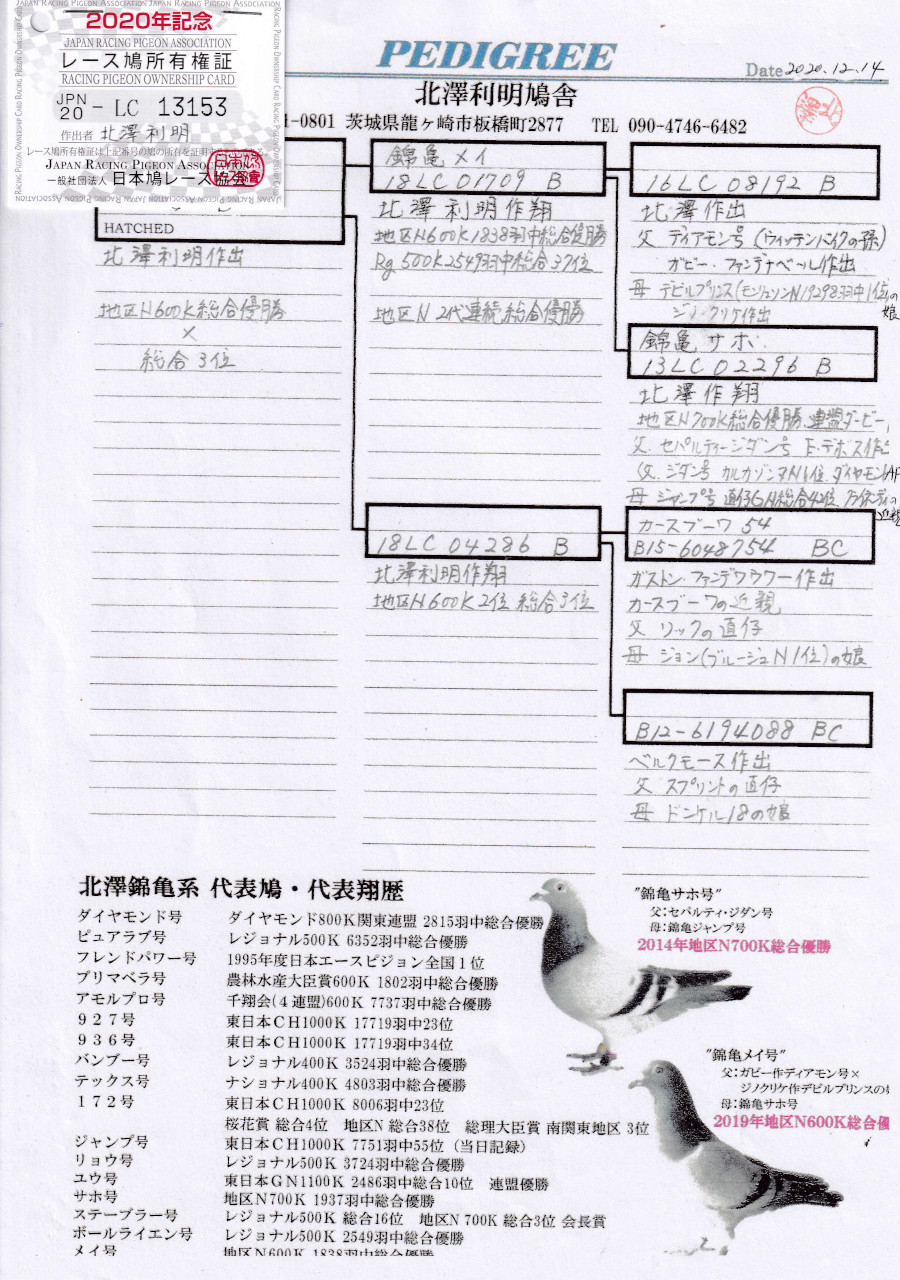 2020年記念
JAPAN RACING PIGEON ASSOCIATION
レース鳩所有権証
RACING PIGEON OWNERSHIP CARD
JPN 20 - LC 13153
作出者 北澤利明
レース鳩所有権証は上記番号の鳩の所有を証明
JAPAN RACING PIGEON ASSOCIATION
一般社団法人 日本鳩レース協会
PEDIGREE
Date 2020.12.14
北澤利明鳩舎
1-0801 茨城県龍ヶ崎市板橋町2877 TEL 090-4746-6482
HATCHED
北澤利明作出
地区N600K総合優勝
×
総合3位
錦亀メイ
18LC01709 B
北澤利明作翔
地区N600K1838羽中総合優勝
Rg500K2549羽中総合37位
地区N2代連続総合優勝
18LC04286 B
北澤利明作翔
地区N600K2位総合3位
16LC08192 B
北澤作出
父 ディアモン号(ウィッテンバイクの孫)
ガビー・ファンデナベール作出
母 デビルプリンス(モンリュソンN19298羽中1位)の娘
ジノ・クリケ作出
錦亀サホ
13LC02296 B
北澤作翔
地区N700K総合優勝、連盟ダービー、
父.セパルティージダン号 E・デボス作
(父.ジダン号 カルカソンヌN1位.ダイヤモン
母 ジャンプ号 直仔GN総合42位
近親
カースブーワ54
B15-6048754 BC
ガストン・ファンデワウワー作出
カースブーワの近親
父 リックの直仔
母 ジョン(ブルージュN1位)の娘
B12-6194088 BC
ベルクモース作出
父 スプリントの直仔
母 ドンケル18の娘
北澤錦亀系 代表鳩・代表翔歴
ダイヤモンド号 ダイヤモンド800K関東連盟 2815羽中総合優勝
ピュアラブ号 レジョナル500K 6352羽中総合優勝
フレンドパワー号 1995年度日本エースピジョン全国1位
プリマベラ号 農林水産大臣賞600K 1802羽中総合優勝
アモルプロ号 千翔会(4連盟)600K 7737羽中総合優勝
927号 東日本CH1000K 17719羽中23位
936号 東日本CH1000K 17719羽中34位
バンブー号 レジョナル400K 3524羽中総合優勝
テックス号 ナショナル400K 4803羽中総合優勝
172号 東日本CH1000K 8006羽中23位
桜花賞 総合4位 地区N 総合38位 総理大臣賞 南関東地区 3位
ジャンプ号 東日本CH1000K 7751羽中55位 (当日記録)
リョウ号 レジョナル500K 3724羽中総合優勝
ユウ号 東日本GN1100K 2486羽中総合10位 連盟優勝
サホ号 地区N700K 1937羽中総合優勝
ステーブラー号 レジョナル500K 総合16位 地区N 700K 総合3位 会長賞
ボールライエン号 レジョナル500K 2549羽中総合優勝
メイ号 地区N600K 1838羽中総合優勝
"錦亀サホ号"
父:セパルティ・ジダン号
母:錦亀ジャンプ号
2014年地区N700K総合優勝
"錦亀メイ号"
父:ガビー作ディアモン号×
ジノクリケ作デビルプリンスの
母:錦亀サホ号
2019年地区N600K総合優